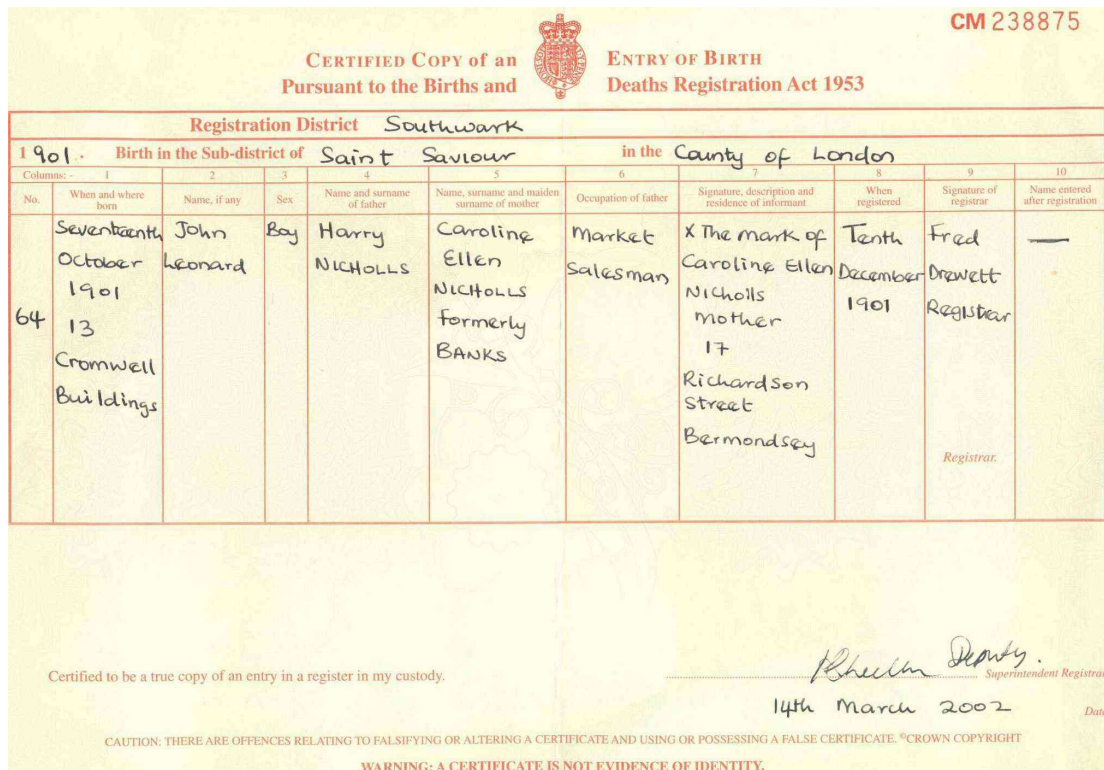 CM 238875
CERTIFIED COPY of an ENTRY OF BIRTH
Pursuant to the Births and Deaths Registration Act 1953
Registration District Southwark
1901. Birth in the Sub-district of Saint Saviour in the County of London
Columns: - 1 2 3 4 5 6 7 8 9 10
No. When and where born Name, if any Sex Name and surname of father Name, surname and maiden surname of mother Occupation of father Signature, description and residence of informant When registered Signature of registrar Name entered after registration
64 Seventeenth October 1901 13 Cromwell Buildings
John Leonard
Boy
Harry NICHOLLS
Caroline Ellen NICHOLLS formerly BANKS
Market Salesman
X The mark of Caroline Ellen Nicholls Mother 17 Richardson Street Bermondsey
Tenth December 1901
Fred Drewett Registrar
—
Registrar.
Certified to be a true copy of an entry in a register in my custody.
Deputy.
Superintendent Registrar
14th March 2002 Date
CAUTION: THERE ARE OFFENCES RELATING TO FALSIFYING OR ALTERING A CERTIFICATE AND USING OR POSSESSING A FALSE CERTIFICATE. ©CROWN COPYRIGHT
WARNING: A CERTIFICATE IS NOT EVIDENCE OF IDENTITY.